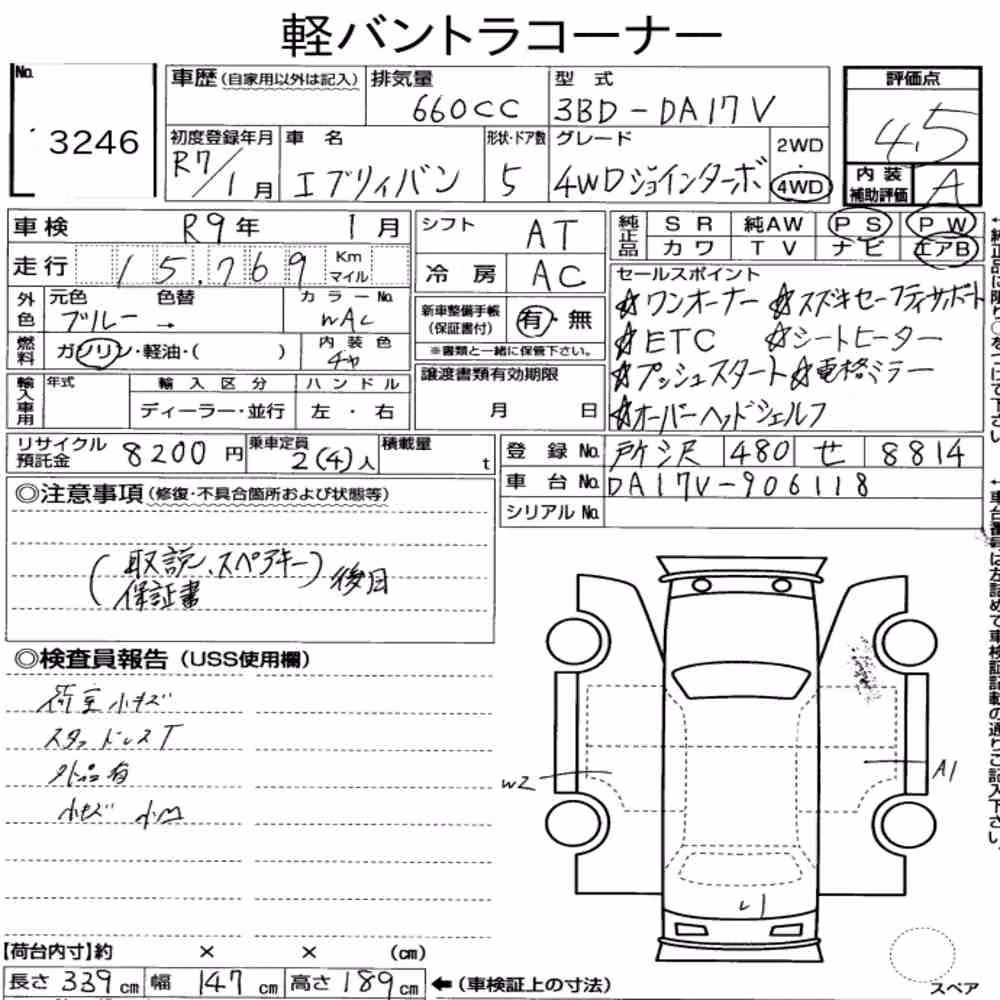 軽バントラコーナー
No. 3246
車歴(自家用以外は記入)
排気量 660CC
型式 3BD-DA17V
評価点 4.5
初度登録年月 R7/1月
車名 エブリィバン
形状・ドア数 5
グレード 4WDジョインターボ
2WD・4WD
内装補助評価 A
車検 R9年 1月
シフト AT
純正品 SR 純AW PS PW
カワ TV ナビ エアB
走行 15,769 Km マイル
冷房 AC
セールスポイント
☆ワンオーナー ☆スズキセーフティサポート
☆ETC ☆シートヒーター
☆プッシュスタート ☆電格ミラー
☆オーバーヘッドシェルフ
外色 元色 ブルー 色替 →
カラーNo.
新車整備手帳(保証書付) 有・無
※書類と一緒に保管下さい。
燃料 ガソリン・軽油・( )
内装色 チャ
譲渡書類有効期限
月 日
輸入車用 年式 輸入区分 ハンドル
ディーラー・並行 左・右
リサイクル預託金 8200円
乗車定員 2(4)人
積載量 t
登録No. 所沢 480 せ 8814
車台No. DA17V-906118
シリアルNo.
◎注意事項(修復・不具合箇所および状態等)
(取説、スペアキー
保証書)後日
◎検査員報告(USS使用欄)
荷室小キズ
スタッドレスT
外品有
小キズ 小凹
W2
A1
【荷台内寸】約 × × (cm)
長さ 339cm 幅 147cm 高さ 189cm ←(車検証上の寸法)
スペア